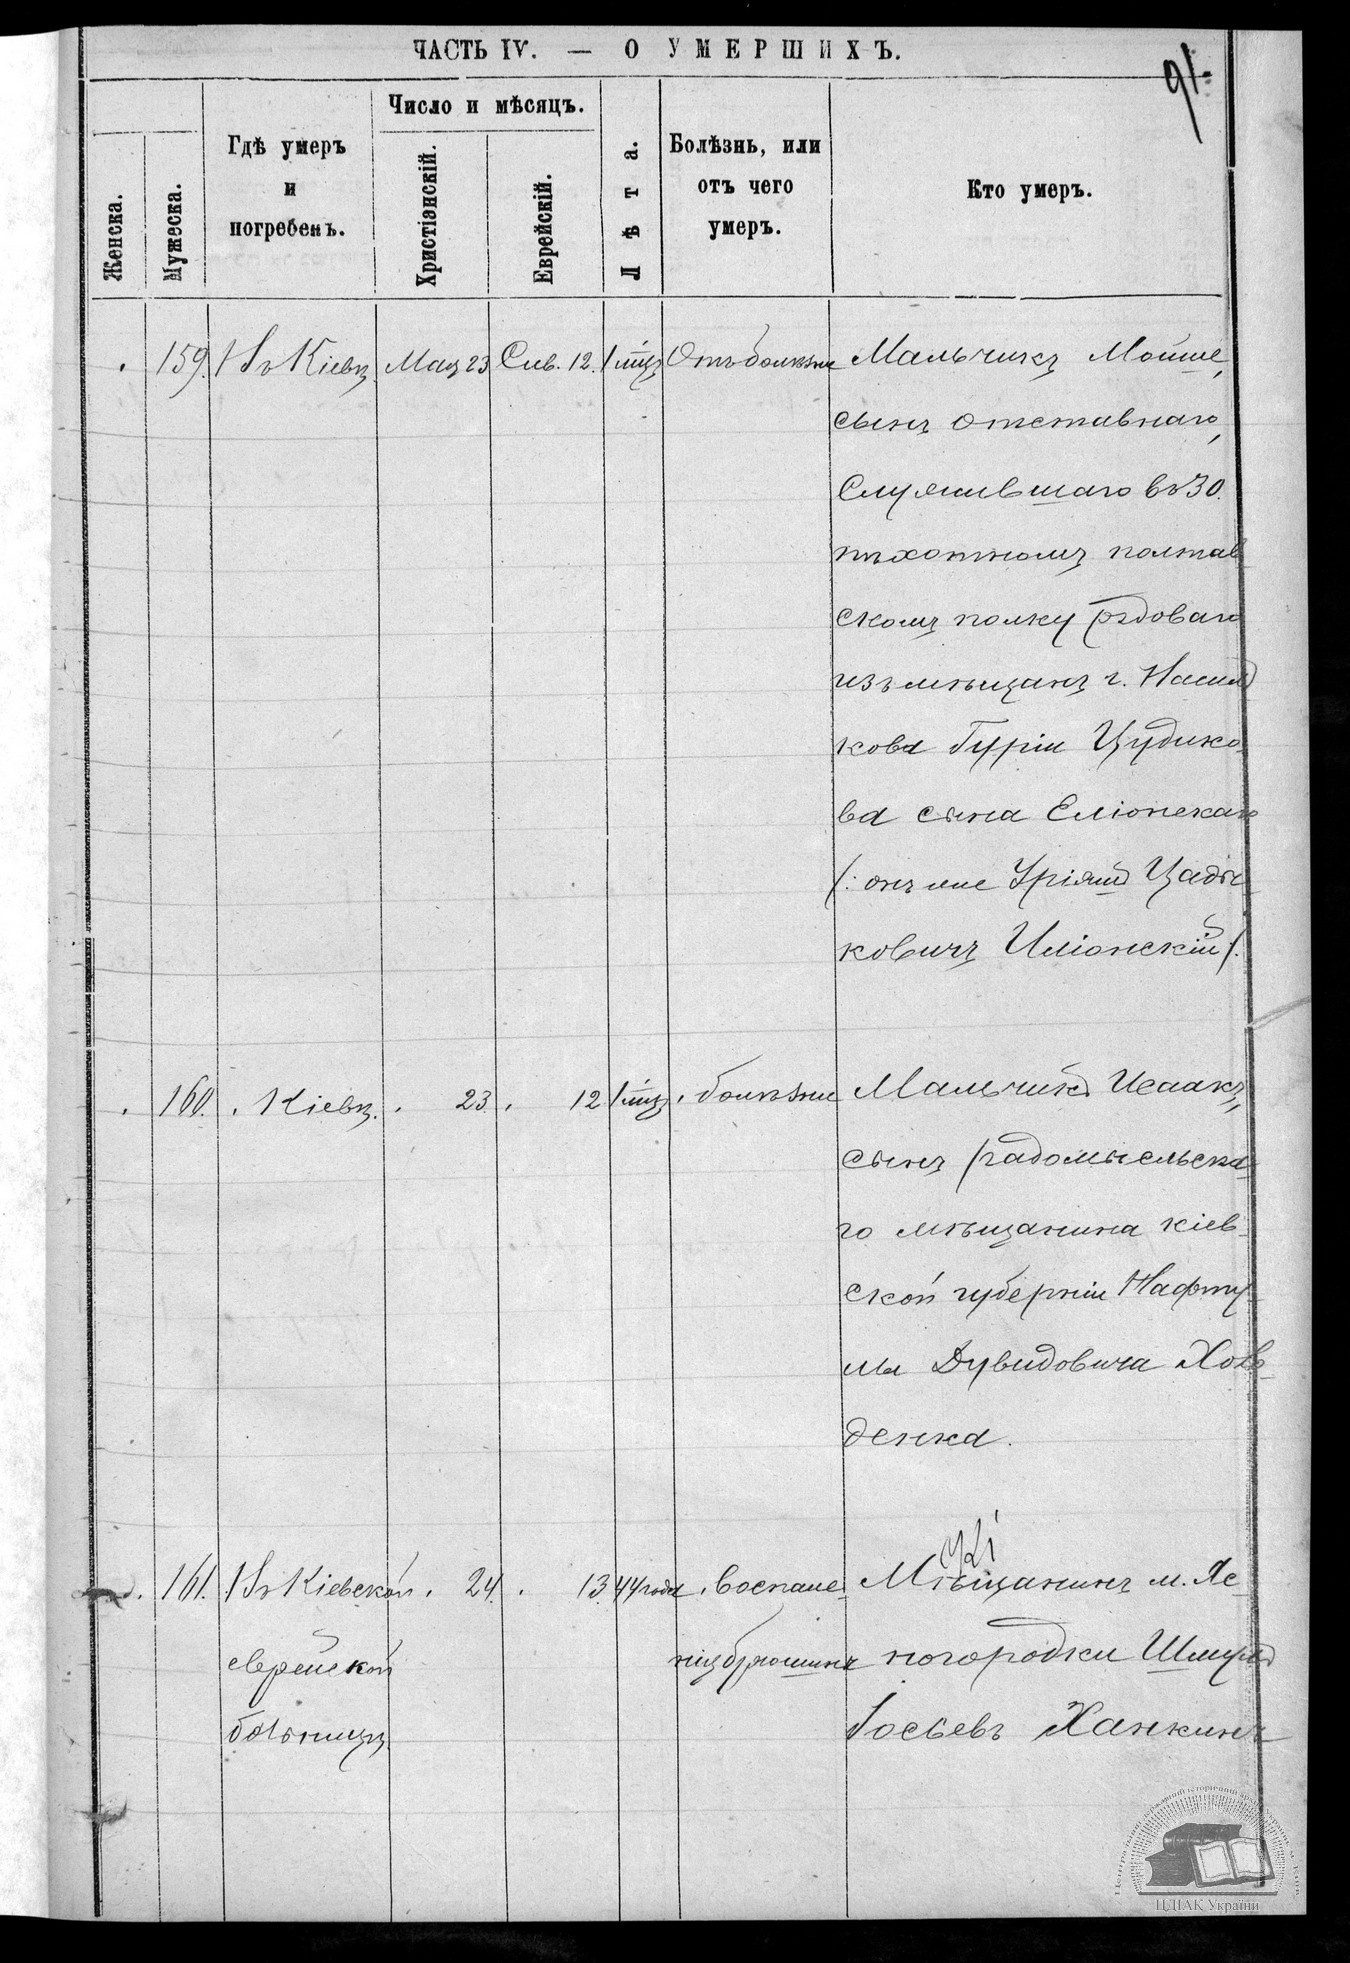 ЧАСТЬ IV. — О УМЕРШИХЪ.
91.
Женска.
Мужеска.
Гдѣ умеръ
и
погребенъ.
Число и мѣсяцъ.
Христіэнскій.
Еврейскій.
Лѣта.
Болѣзнь, или
отъ чего
умеръ.
Кто умеръ.
159. Въ Кіевѣ Мая 23 Сив. 12. 1 мѣц Отъ болѣзни Мальчикъ Мойше,
сынъ отставнаго,
Служившаго въ 30.
пѣхотномъ полтав
скомъ полку рядоваго
изъ мѣщанъ г. Васил
кова Гуріи Цудико-
ва сына Еліонскаго
/: онъ же Уріяшъ Цады
ковичъ Иліонскій /:
160. Кіевѣ. 23. 12 1 мѣц. болѣзни Мальчикъ Исаакъ,
сынъ радомысльска-
го мѣщанина кіев-
ской губерніи Нафту-
лы Дувидовича Хов-
денка.
161. Въ Кіевской 24. 13. 44 года воспале- Мѣщанинъ м. Яс-
еврейской
больницѣ.
ніи брюшины ногородки Шмуль
Іосьевъ Ханкинъ
ЦДІАК України